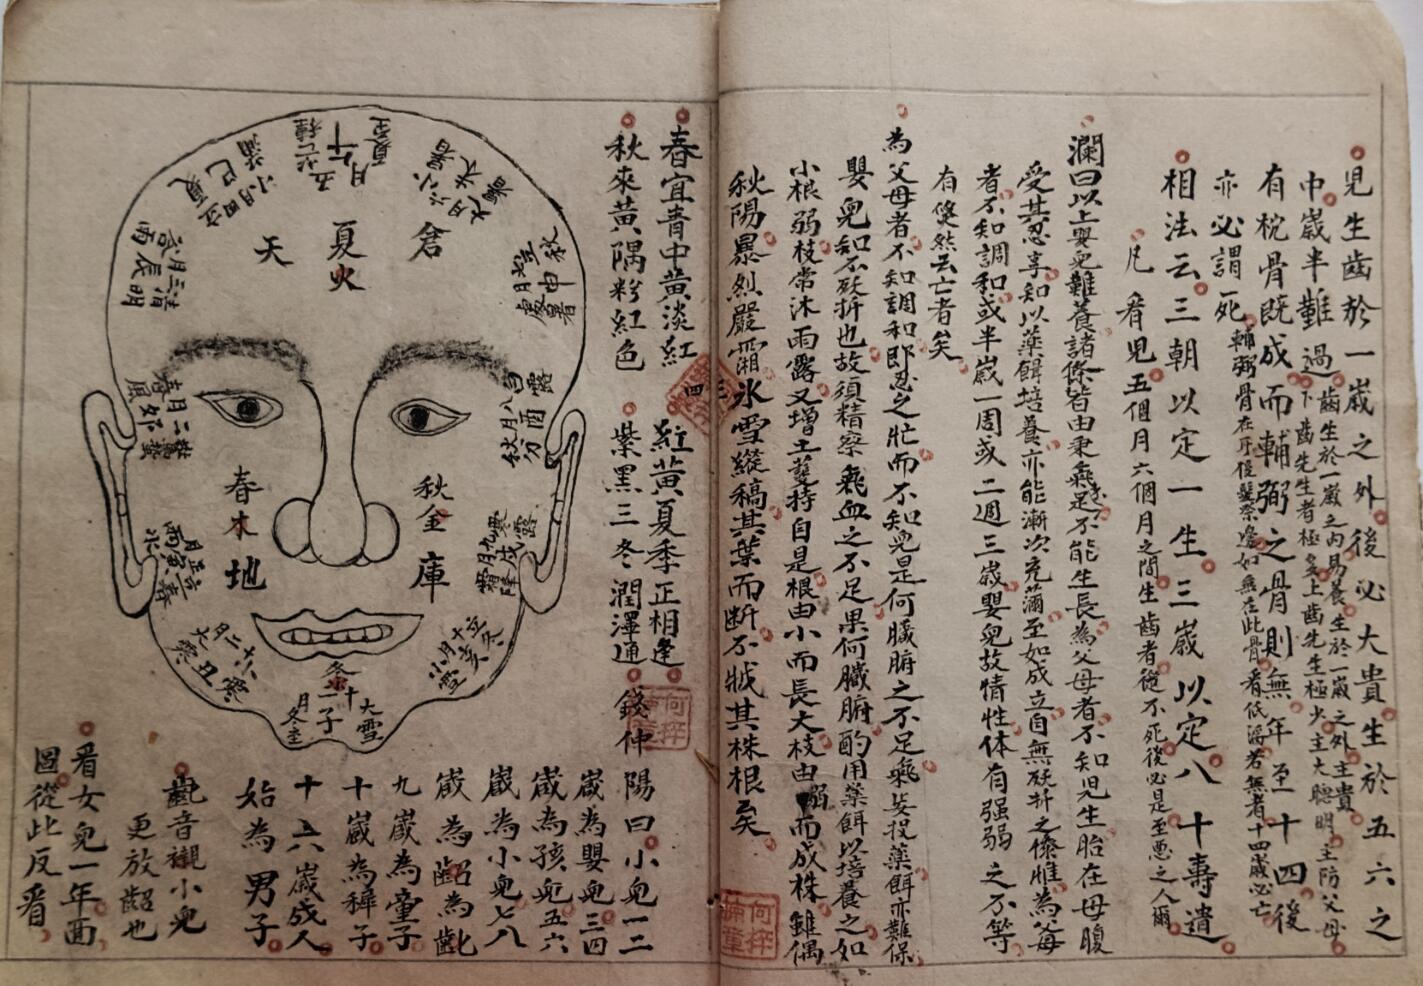 児生齒於一嵗之外後必大貴生於五六之
中嵗半難過
齒生於一嵗之內易養生於一嵗之外主貴
下齒先生者極多上齒先生極少主大聰明主防父母
有枕骨既成而輔弼之骨則無年至十四後
亦必謂死
輔弼骨在耳後鬓際處如無在此骨看低濕若無者十四嵗必亡
相法云三朝以定一生三嵗以定八十壽遺
凡看児五個月六個月之間生齒者從不死後必是至惡之人爾
瀾曰以上嬰兒難養諸條皆由秉氣不足不能生長為父母者不知児生胎在母腹
受其忍享知以藥餌培養亦能漸次充滿至如成立自無殀折之條惟為父母
者不知調和或半嵗一周或二週三嵗嬰兒故情性体有强弱之不等
有傻然云亡者矣
為父母者不知調和即忍之壯而不知兒是何臟腑之不足氣妄投藥餌亦難保
嬰兒知不殀折也故須精察氣血之不足果何臟腑酌用藥餌以培養之如
小根弱枝常沐雨露又增土䕶持自是根由小而長大枝由弱而成株雖偶
秋陽暴烈嚴霜氷雪縱稿其葉而断不戕其株根矣
春宜青中黄淡紅
紅黄夏季正相逢
秋來黄隅粉紅色
紫黑三冬潤澤通
錢仲
陽曰小兒一二
嵗為嬰兒三四
嵗為孩兒五六
嵗為小兒七八
嵗為齠為齔
九嵗為童子
十嵗為穉子
十六嵗成人
始為男子
齔音襯小兒
更放齠也
看女兒一年面
圖從此反看
倉
夏火
天
五月午
芒種
夏至
六月
小暑
七月申
處暑
八月酉
白露
秋分
九月戌
寒露
霜降
十月亥
立冬
小雪
十一月子
大雪
冬至
冬水
十二月丑
小寒
大寒
正月寅
立春
雨水
二月卯
驚蟄
春
三月辰
清明
四月巳
立夏
小滿
秋金
庫
春木
地
何梓